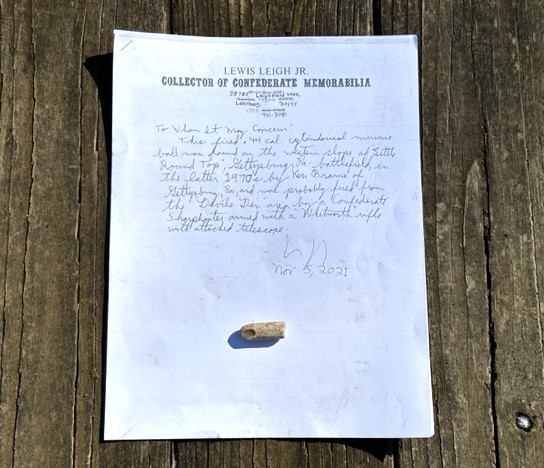 LEWIS LEIGH JR.
COLLECTOR OF CONFEDERATE MEMORABILIA
Leigh Field Lane,
20175
To Whom It May Concern:
This fired .44 cal cylindrical minnie
ball was found on the western slope of "Little
Round Top", Gettysburg, Pa. battlefield, in
the latter 1970's by Ken Brame of
Gettysburg, Pa, and was probably fired from
the "Devils Den" area by a Confederate
Sharpshooter armed with a Whitworth rifle
with attached telescope.
Nov 5, 2021